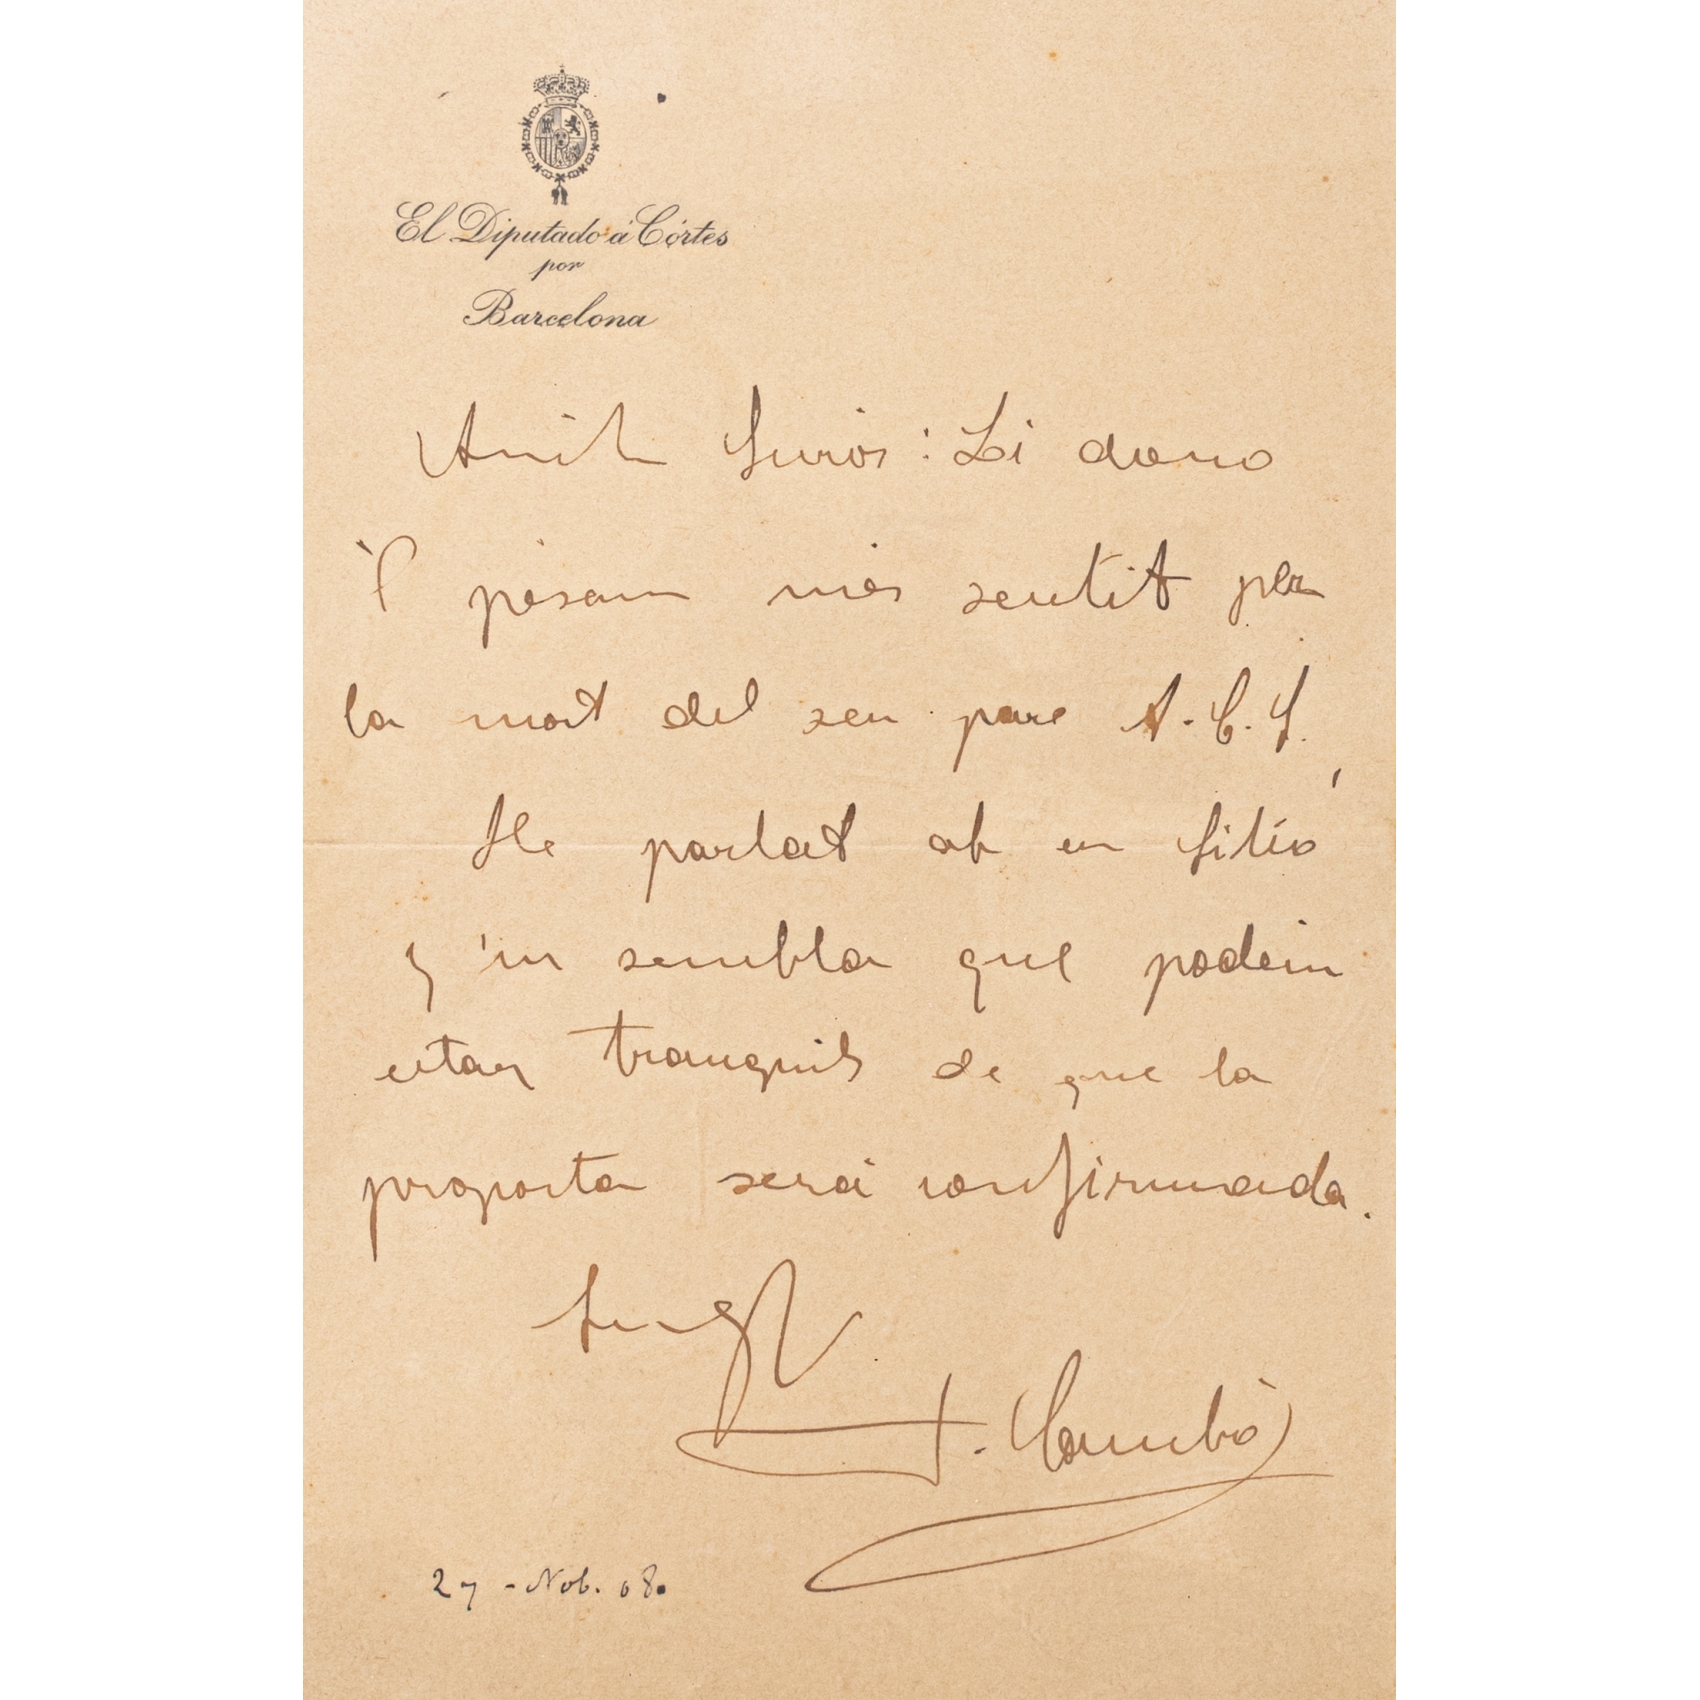 El Diputado á Córtes
por
Barcelona
Amich Surós: Li dono
'l pèsam més sentit per
la mort del seu pare A. C. S.
He parlat ab en
y 'm sembla que podem
estar tranquils de que la
proposta serà confirmada.
F. Cambó
27 - Nob. 08.